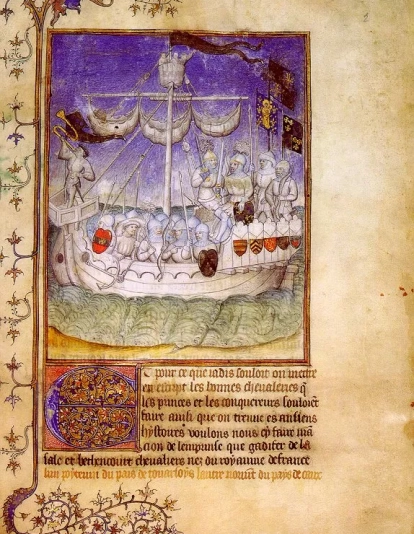 Et pour ce que iadis souloit on mectre
en escript les bonnes cheualeries q̄
les princes et les conquereurs souloiēt
faire ainsi que on treuue es ansiens
hystoires voulons nous cy faire mā
cion de lemprinse que gadifer de la
sale et bethencourt cheualiers nez du royaume de france
lun poiteuin du pais de touarsoys lautre normāt du pays de caux